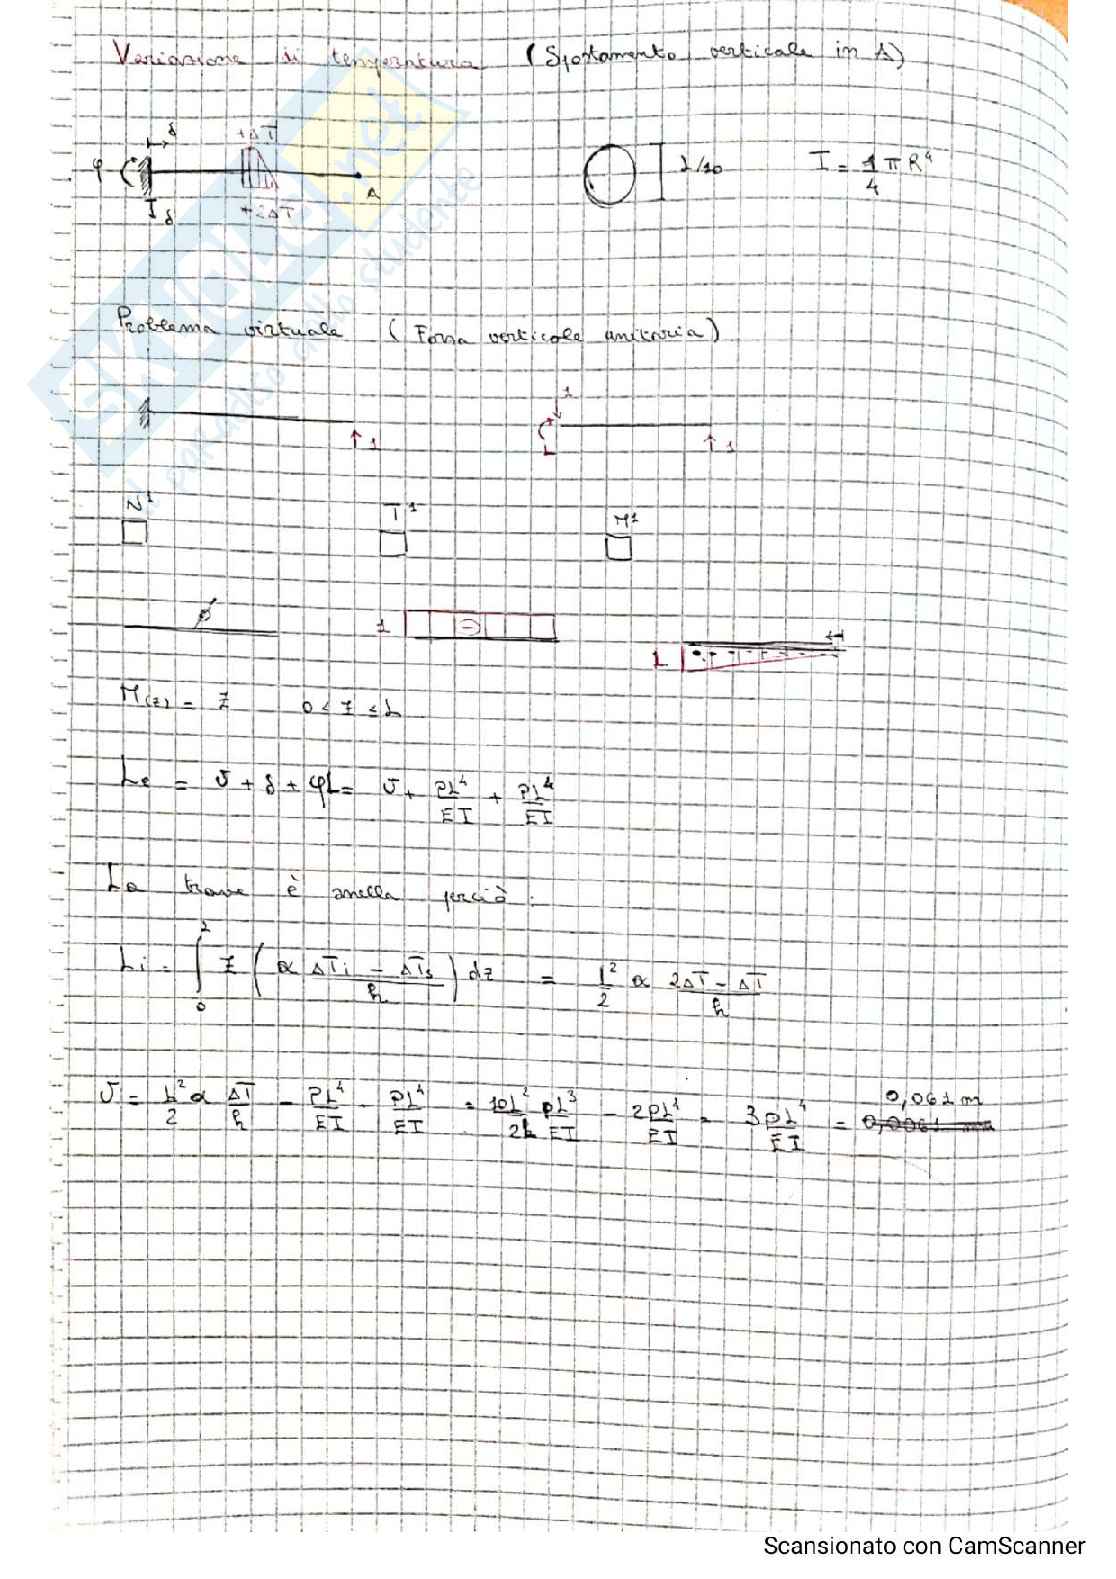 Variazione di temperatura (Spostamento verticale in A)
δ
+ΔT
φ
A
δ
+2ΔT
L/10
I = 1/4 π R⁴
SKUOLA.net
il paradiso dello studente
Problema virtuale (Forza verticale unitaria)
1
1
L
1
N¹
T¹
M¹
ø
1
⊖
L
M(z) = z 0 < z ≤ L
Le = v + δ + φL = v + PL⁴/EI + PL⁴/EI
La trave è snella perciò:
Li = ∫₀ᴸ z (α ΔTi - ΔTs / h) dz = L²/2 α 2ΔT - ΔT / h
v = L²/2 α ΔT/h - PL⁴/EI - PL⁴/EI = 10L²/2L pL³/EI - 2PL⁴/EI = 3 pL⁴/EI = 0,061 m
Scansionato con CamScanner